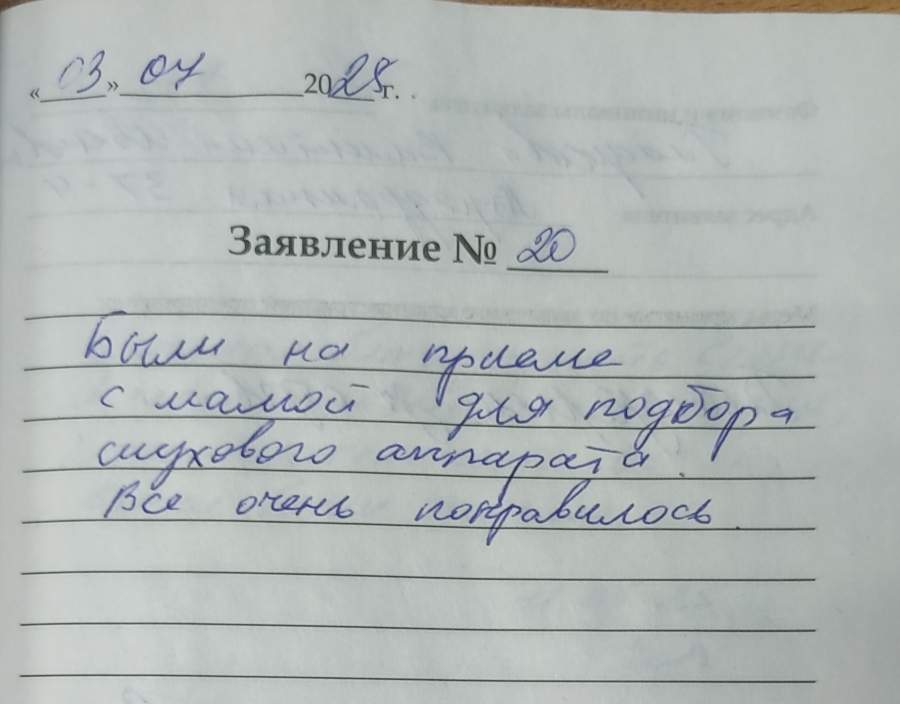 «03» 07 2025 г.
Заявление № 20
Были на приеме
с мамой для подбора
слухового аппарата.
Все очень понравилось.